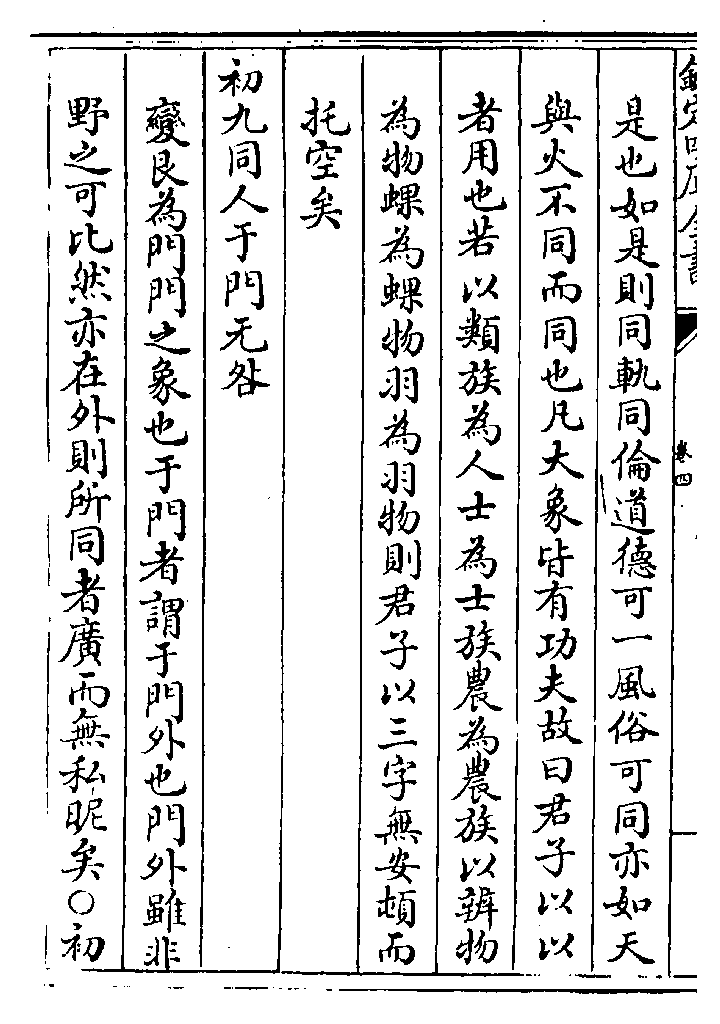 欽定四庫全書
卷四
是也如是則同軌同倫道德可一風俗可同亦如天
與火不同而同也凡大象皆有功夫故曰君子以以
者用也若以類族為人士為士族農為農族以辨物
為物蜾為蜾物羽為羽物則君子以三字無安頓而
托空矣
初九同人于門无咎
變艮為門門之象也于門者謂于門外也門外雖非
野之可比然亦在外則所同者廣而無私昵矣○初